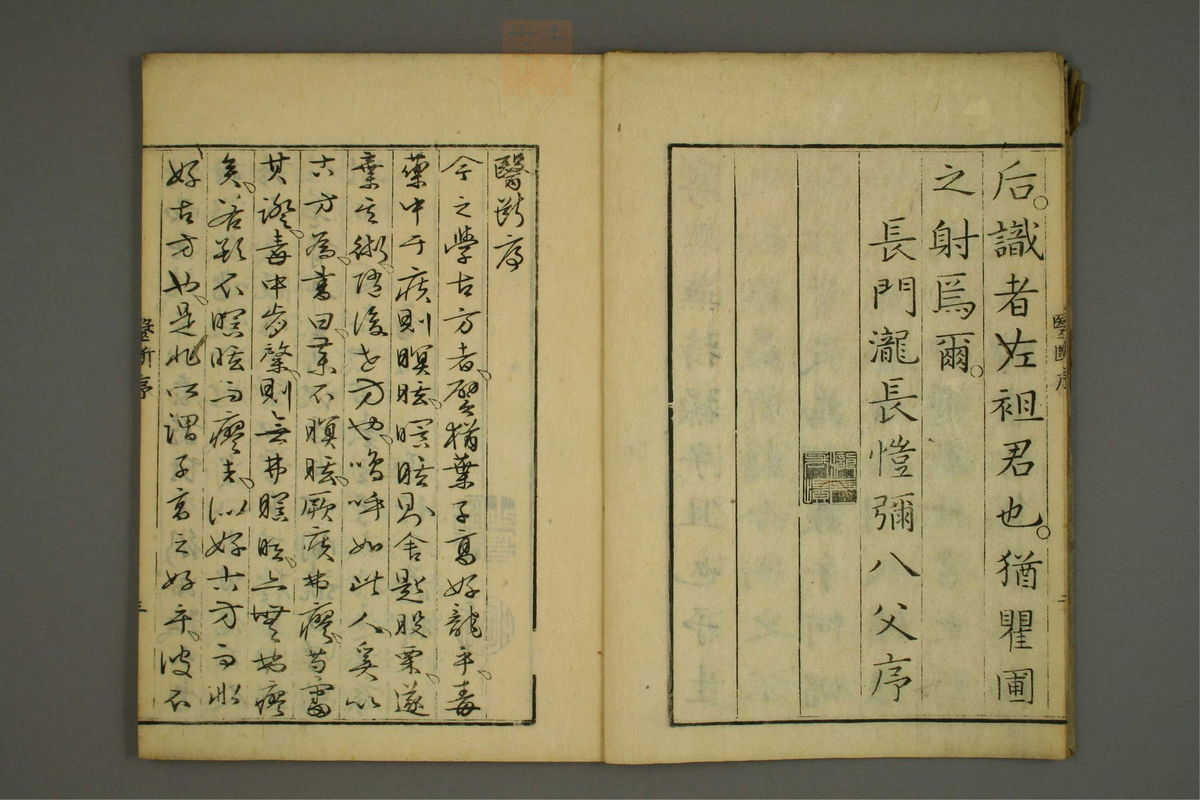 后。識者左袒君也。猶瞿圃
之射爲爾。
長門瀧長愷彌八父序
醫斷序
醫斷序
今之學古方者。譬猶葉子高好龍乎。毒
藥中于疾則瞑眩。瞑眩則舍匙股栗。遂
棄其術。後世方也。嗚呼如此人。奚以
古方爲。書曰。藥不瞑眩。厥疾弗瘳。苟
其證。毒中肯綮。則無弗瞑眩。亦無弗瘳
矣。若欲不瞑眩而瘳者。似好古方而非
好古方也。是非所謂子高之好乎。彼不
醫斷序